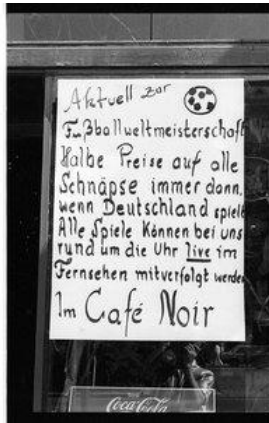 Aktuell zur
Fußballweltmeisterschaft
Halbe Preise auf alle
Schnäpse immer dann,
wenn Deutschland spielt
Alle Spiele Können bei uns
rund um die Uhr live im
Fernsehen mitverfolgt werden
Im Café Noir
Coca-Cola